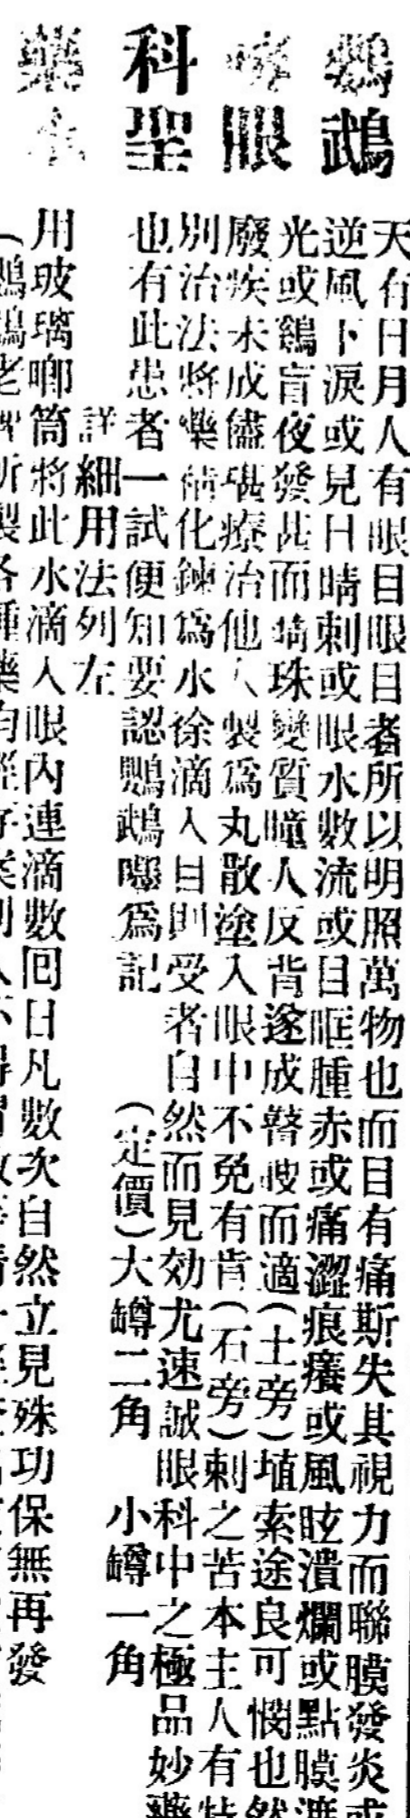 鸚鵡
嘜眼
科聖
藥水
天有日月人有眼目眼目者所以明照萬物也而目有痛斯失其視力而聯膜發炎或
逆風下淚或見日晴刺或眼水數流或目眶腫赤或痛澀痕癢或風眩潰爛或點膜
光或鷄盲夜發甚而睛珠變質瞳人反背遂成瞽瞍而適(土旁)埴索途良可憫也然
廢疾未成儘堪療治他人製爲丸散塗入眼中不免有肯(石旁)刺之苦本主人有特
別治法將藥精化鍊爲水徐滴入目則受者自然而見効尤速誠眼科中之極品妙藥
也有此患者一試便知要認鸚鵡嘜爲記 (定價)大罇二角 小罇一角
詳細用法列左
用玻璃啣筒將此水滴入眼內連滴數回日凡數次自然立見殊功保無再發